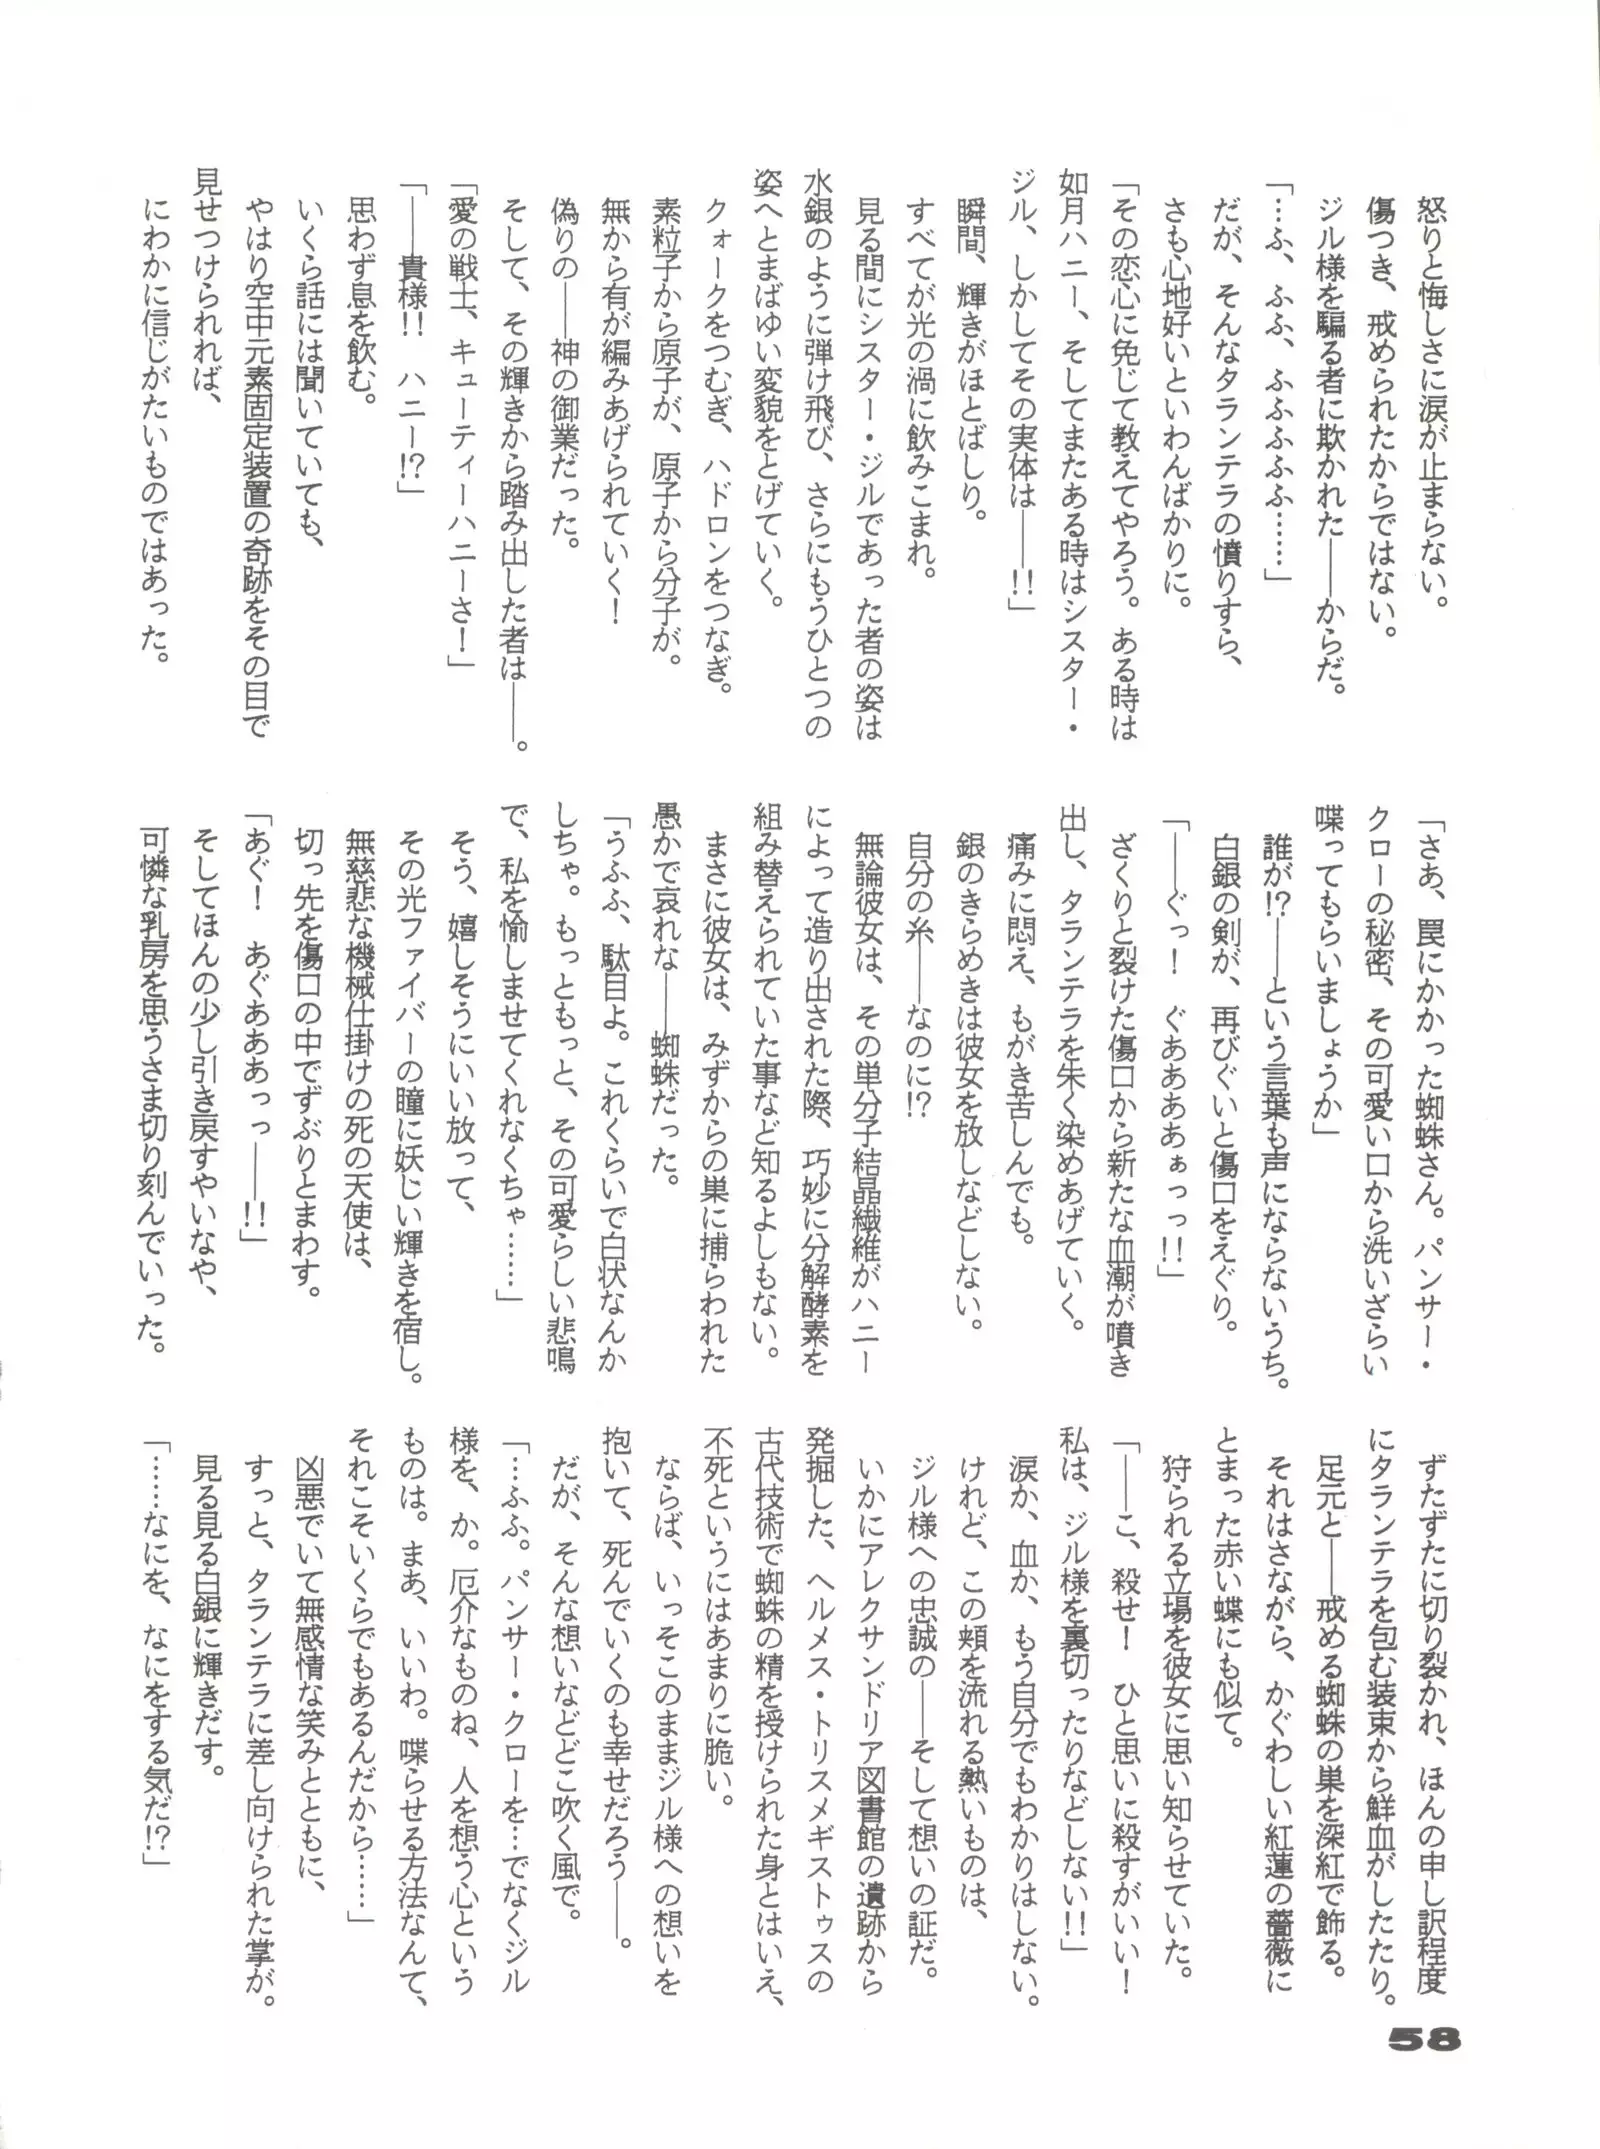 怒りと悔しさに涙が止まらない。
傷つき、戒められたからではない。
ジル様を騙る者に欺かれた――からだ。
「…ふ、ふふ、ふふふふふ……」
だが、そんなタランテラの憤りすら、
さも心地好いといわんばかりに。
「その恋心に免じて教えてやろう。ある時は
如月ハニー、そしてまたある時はシスター・
ジル、しかしてその実体は――!!」
瞬間、輝きがほとばしり。
すべてが光の渦に飲みこまれ。
見る間にシスター・ジルであった者の姿は
水銀のように弾け飛び、さらにもうひとつの
姿へとまばゆい変貌をとげていく。
クォークをつむぎ、ハドロンをつなぎ。
素粒子から原子が、原子から分子が。
無から有が編みあげられていく！
偽りの――神の御業だった。
そして、その輝きから踏み出した者は――。
「愛の戦士、キューティーハニーさ！」
「――貴様!!　ハニー!?」
思わず息を飲む。
いくら話には聞いていても、
やはり空中元素固定装置の奇跡をその目で
見せつけられれば、
にわかに信じがたいものではあった。
「さあ、罠にかかった蜘蛛さん。パンサー・
クローの秘密、その可愛い口から洗いざらい
喋ってもらいましょうか」
誰が!?――という言葉も声にならないうち。
白銀の剣が、再びぐいと傷口をえぐり。
「――ぐっ！　ぐああああぁっっ!!」
ざくりと裂けた傷口から新たな血潮が噴き
出し、タランテラを朱く染めあげていく。
痛みに悶え、もがき苦しんでも。
銀のきらめきは彼女を放しなどしない。
自分の糸――なのに!?
無論彼女は、その単分子結晶繊維がハニー
によって造り出された際、巧妙に分解酵素を
組み替えられていた事など知るよしもない。
まさに彼女は、みずからの巣に捕らわれた
愚かで哀れな――蜘蛛だった。
「うふふ、駄目よ。これくらいで白状なんか
しちゃ。もっともっと、その可愛らしい悲鳴
で、私を愉しませてくれなくちゃ……」
そう、嬉しそうにいい放って、
その光ファイバーの瞳に妖じい輝きを宿し。
無慈悲な機械仕掛けの死の天使は、
切っ先を傷口の中でずぶりとまわす。
「あぐ！　あぐあああっっ――!!」
そしてほんの少し引き戻すやいなや、
可憐な乳房を思うさま切り刻んでいった。
ずたずたに切り裂かれ、ほんの申し訳程度
にタランテラを包む装束から鮮血がしたたり。
足元と――戒める蜘蛛の巣を深紅で飾る。
それはさながら、かぐわしい紅蓮の薔薇に
とまった赤い蝶にも似て。
狩られる立場を彼女に思い知らせていた。
「――こ、殺せ！　ひと思いに殺すがいい！
私は、ジル様を裏切ったりなどしない!!」
涙か、血か、もう自分でもわかりはしない。
けれど、この頬を流れる熱いものは、
ジル様への忠誠の――そして想いの証だ。
いかにアレクサンドリア図書館の遺跡から
発掘した、ヘルメス・トリスメギストゥスの
古代技術で蜘蛛の精を授けられた身とはいえ、
不死というにはあまりに脆い。
ならば、いっそこのままジル様への想いを
抱いて、死んでいくのも幸せだろう――。
だが、そんな想いなどどこ吹く風で。
「…ふふ。パンサー・クローを…でなくジル
様を、か。厄介なものね、人を想う心という
ものは。まあ、いいわ。喋らせる方法なんて、
それこそいくらでもあるんだから……」
凶悪でいて無感情な笑みとともに、
すっと、タランテラに差し向けられた掌が。
見る見る白銀に輝きだす。
「……なにを、なにをする気だ!?」
58